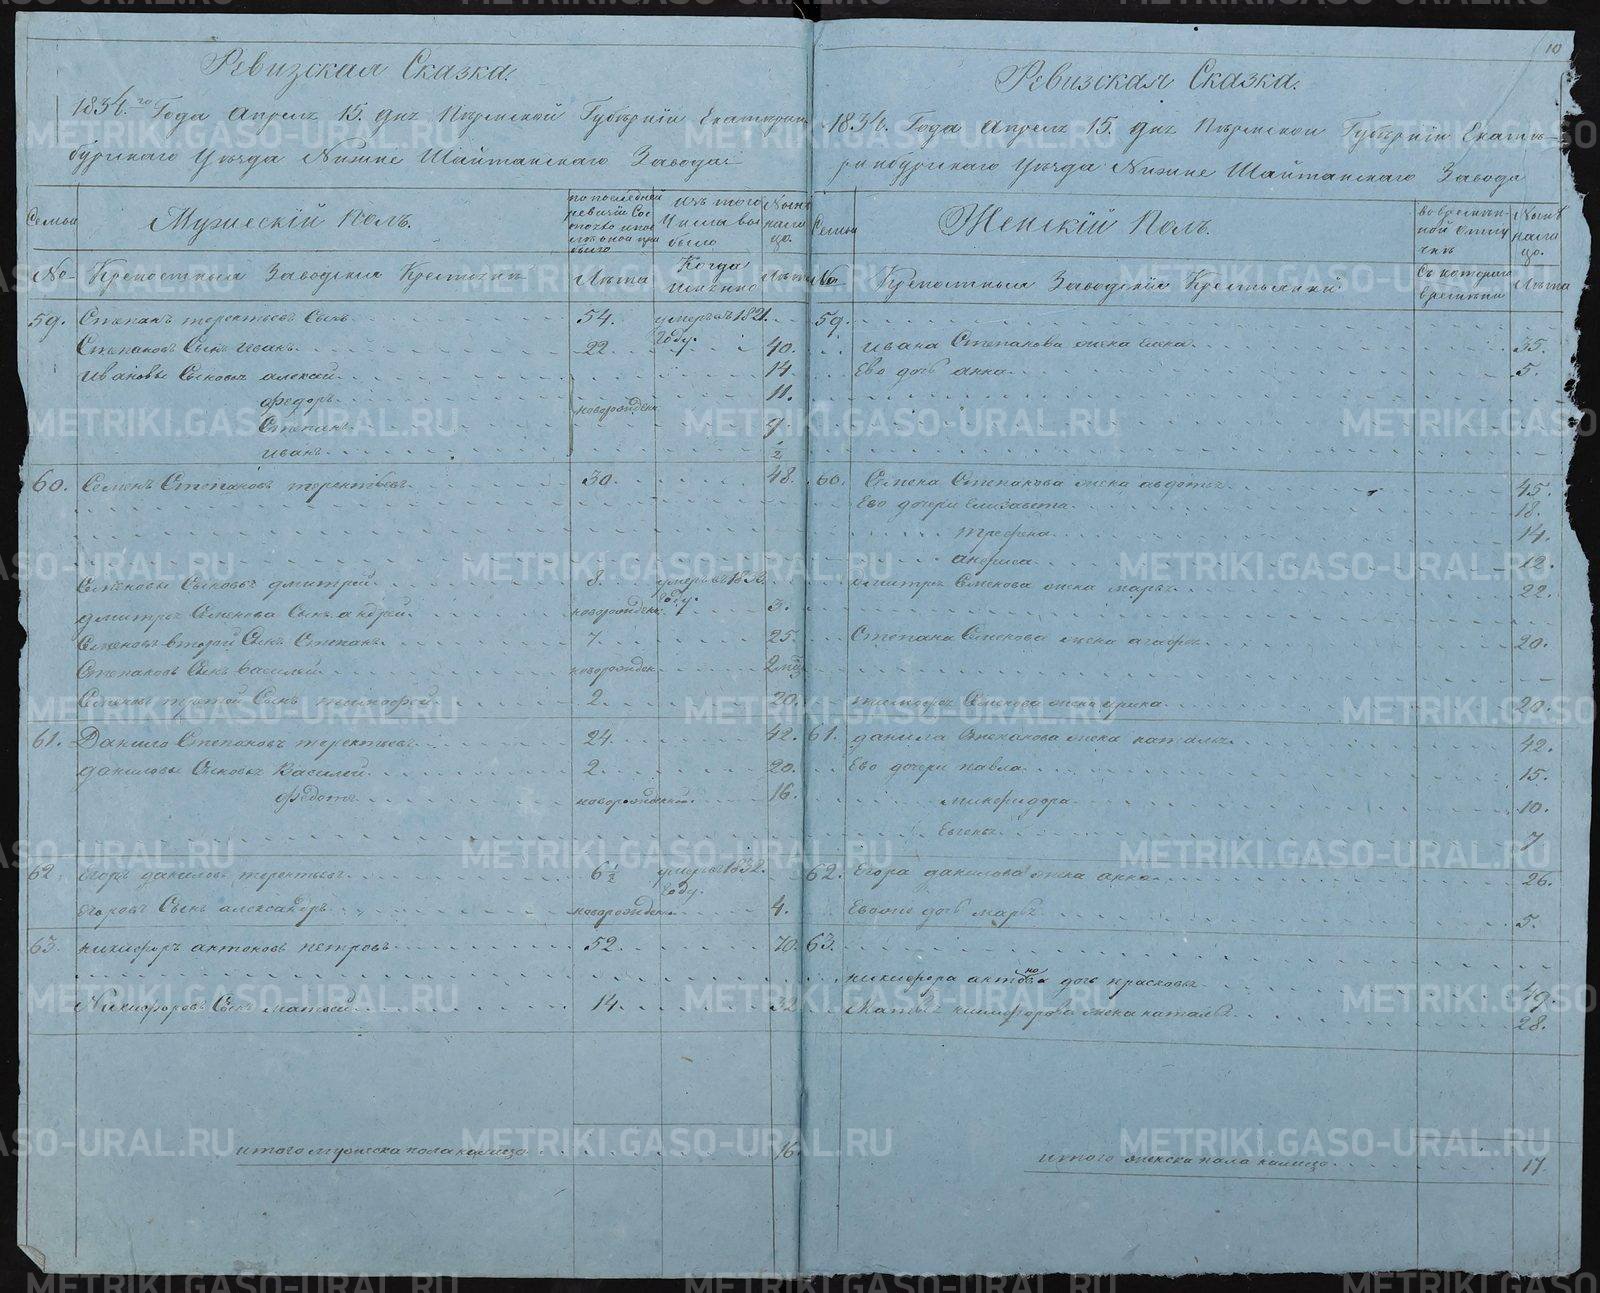 Ревизская Сказка.
1834.го Года Апреля 15. дня Пермской Губернiи Екатерин
бургскаго Уезда Нижне Шайтанскаго Завода
Семьи
Мужескiй Полъ.
по последней ревизiи Состояло и после оной прибыло
изъ того Числа выбыло
Ныне налицо.
№
Крепостныя Заводскiя Крестьяне
Лета
Когда именно
Лета
59. Степанъ терентьевъ Сынъ 54. умеръ въ 1821. году.
Степановъ Сынъ Иванъ 22 40.
Ивановы Сыновья алексей 14
федоръ новорожден 11.
Степанъ 9.
иванъ 1/2
60. Семенъ Степановъ терентьевъ 30. 48.
Семеновы Сыновья дмитрей 8. умеръ въ 1832. году.
дмитрея Семенова Сынъ андрей новорожден 3.
Семеновъ второй Сынъ Степанъ 7. 25.
Степановъ Сынъ василей новорожден 2 мц
Семеновъ третей Сынъ тимофей 2. 20.
61. Данило Степановъ терентьевъ 24. 42.
даниловы Сыновья Василей 2. 20.
Федотъ новорожденной 16.
62 Егоръ даниловъ терентьевъ 6 1/2 умеръ въ 1832. году.
Егоровъ Сынъ александръ новорожден 4.
63. никифоръ антоновъ петровъ 52. 70.
Никифоровъ Сынъ матвей 14. 32
итого мужеска пола налицо 16.
10
Ревизская Сказка.
1834. Года Апреля 15. дня Пермской Губернiи Екате-
ринбургскаго Уезда Нижне Шайтанскаго Завода
Семьи
Женскiй Полъ.
во временной отлучке
Ныне налицо.
№
Крепостныя Заводскiя Крестьянки
Съ котораго времени
Лета
59.
ивана Степанова жена елена 35.
Ево дочь анна 5.
60. Семена Степанова жена авдотья 45.
Ево дочери елизавета 18.
14.
анфиса 12.
дмитрея Семенова жена марья 22.
Степана Семенова жена агафья 20.
тимофея Семенова жена ирина 20.
61. данила Степанова жена наталья 42.
Ево дочери павла 15.
минофидора 10.
Евгенья 7
62. Егора данилова жена анна 26.
Евоже дочь марья 5.
63.
никифора антонова дочь прасковья 49.
Матвея никифорова жена наталья 28.
итого женска пола налицо 17.
METRIKI.GASO-URAL.RU